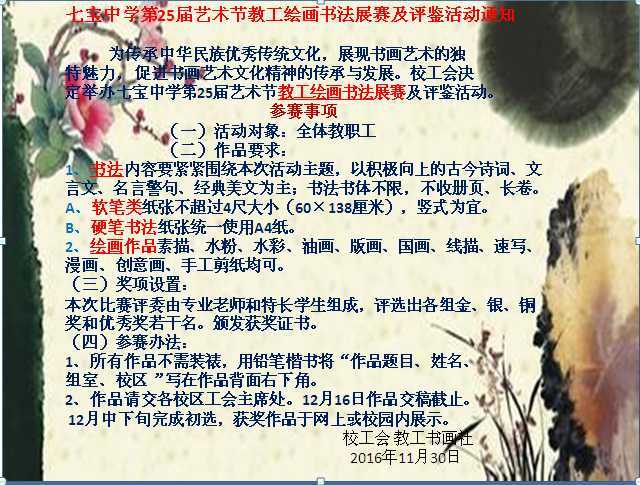 七宝中学第25届艺术节教工绘画书法展赛及评鉴活动通知
为传承中华民族优秀传统文化，展现书画艺术的独
特魅力，促进书画艺术文化精神的传承与发展。校工会决
定举办七宝中学第25届艺术节教工绘画书法展赛及评鉴活动。
参赛事项
（一）活动对象：全体教职工
（二）作品要求：
1、书法内容要紧紧围绕本次活动主题，以积极向上的古今诗词、文
言文、名言警句、经典美文为主；书法书体不限，不收册页、长卷。
A、软笔类纸张不超过4尺大小（60×138厘米），竖式为宜。
B、硬笔书法纸张统一使用A4纸。
2、绘画作品素描、水粉、水彩、油画、版画、国画、线描、速写、
漫画、创意画、手工剪纸均可。
（三）奖项设置：
本次比赛评委由专业老师和特长学生组成，评选出各组金、银、铜
奖和优秀奖若干名。颁发获奖证书。
（四）参赛办法：
1、所有作品不需装裱，用铅笔楷书将“作品题目、姓名、
组室、校区 ”写在作品背面右下角。
2、作品请交各校区工会主席处。12月16日作品交稿截止。
12月中下旬完成初选，获奖作品于网上或校园内展示。
校工会 教工书画社
2016年11月30日